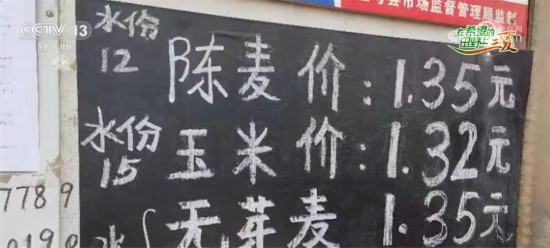 CCTV 13
新闻
县市场监督管理局监制
在希望的
田野上
三夏
水份
12
陈麦价:1.35元
水份
15
玉米价:1.32元
水
无芽麦 1.35元
7789
019